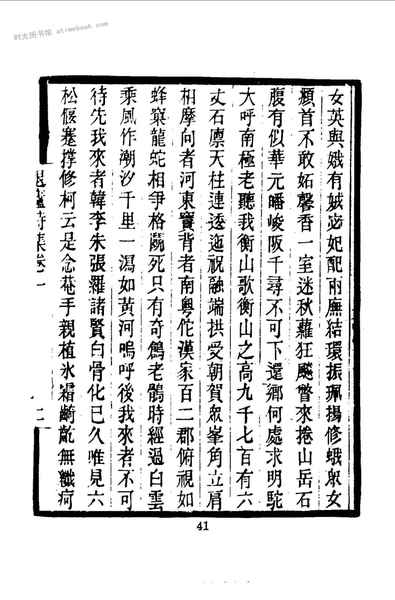 时光图书馆 alimebook.com
女英與娥有娀宓妃配兩廡結環振珮揚修蛾眾女
顏首不敢妬馨香一室迷秋蘿狂飈瞥來捲山岳石
腹有似華元皤峻阪千尋不可下還鄉何處求明駝
大呼南極老聽我衡山歌衡山之高九千七百有六
丈石廩天柱連逶迤祝融端拱受朝賀眾峯角立肩
相摩向者河東竇背者南粵佗漢家百二郡俯視如
蜂窠龍蛇相爭格鬭死只有奇鶬老鶻時經過白雲
乘風作潮汐千里一瀉如黃河嗚呼後我來者不可
待先我來者韓李朱張羅諸賢白骨化已久唯見六
松偃蹇撐修柯云是念菴手親植氷霜齮齕無纖疴
詩集卷一
二
41